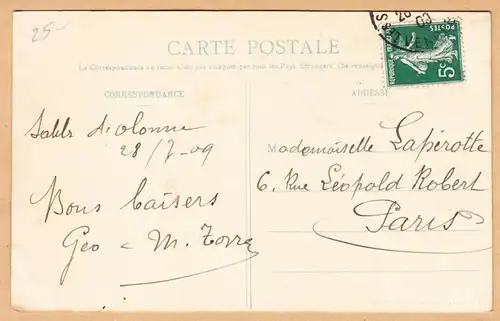 25-
CARTE POSTALE
La Correspondance au recto n'est pas acceptée par tous les Pays Étrangers. (Se renseigner
CORRESPONDANCE
ADRESSE
Sables d'olonne
28/7-09
Bons baisers
Geo - M. Torre
Mademoiselle Lapérotte
6. Rue Léopold Robert
Paris
REPUBLIQUE
POSTES
5c